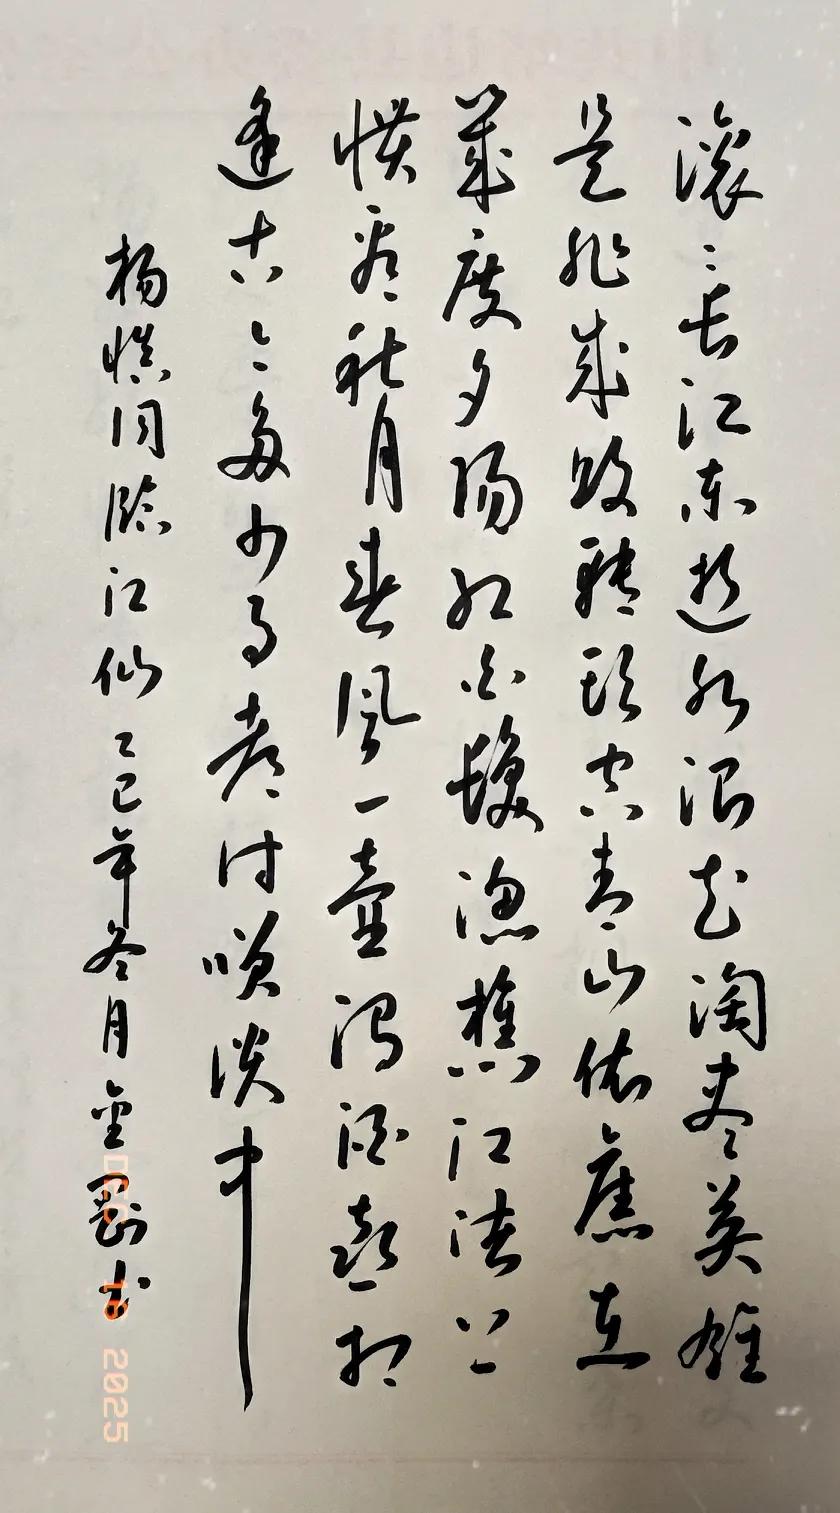 滚滚长江东逝水浪花淘尽英雄
是非成败转头空青山依旧在
几度夕阳红白发渔樵江渚上
惯看秋月春风一壶浊酒喜相
逢古今多少事都付笑谈中
杨慎词临江仙乙巳年冬月金刚书
DEC 18 2025